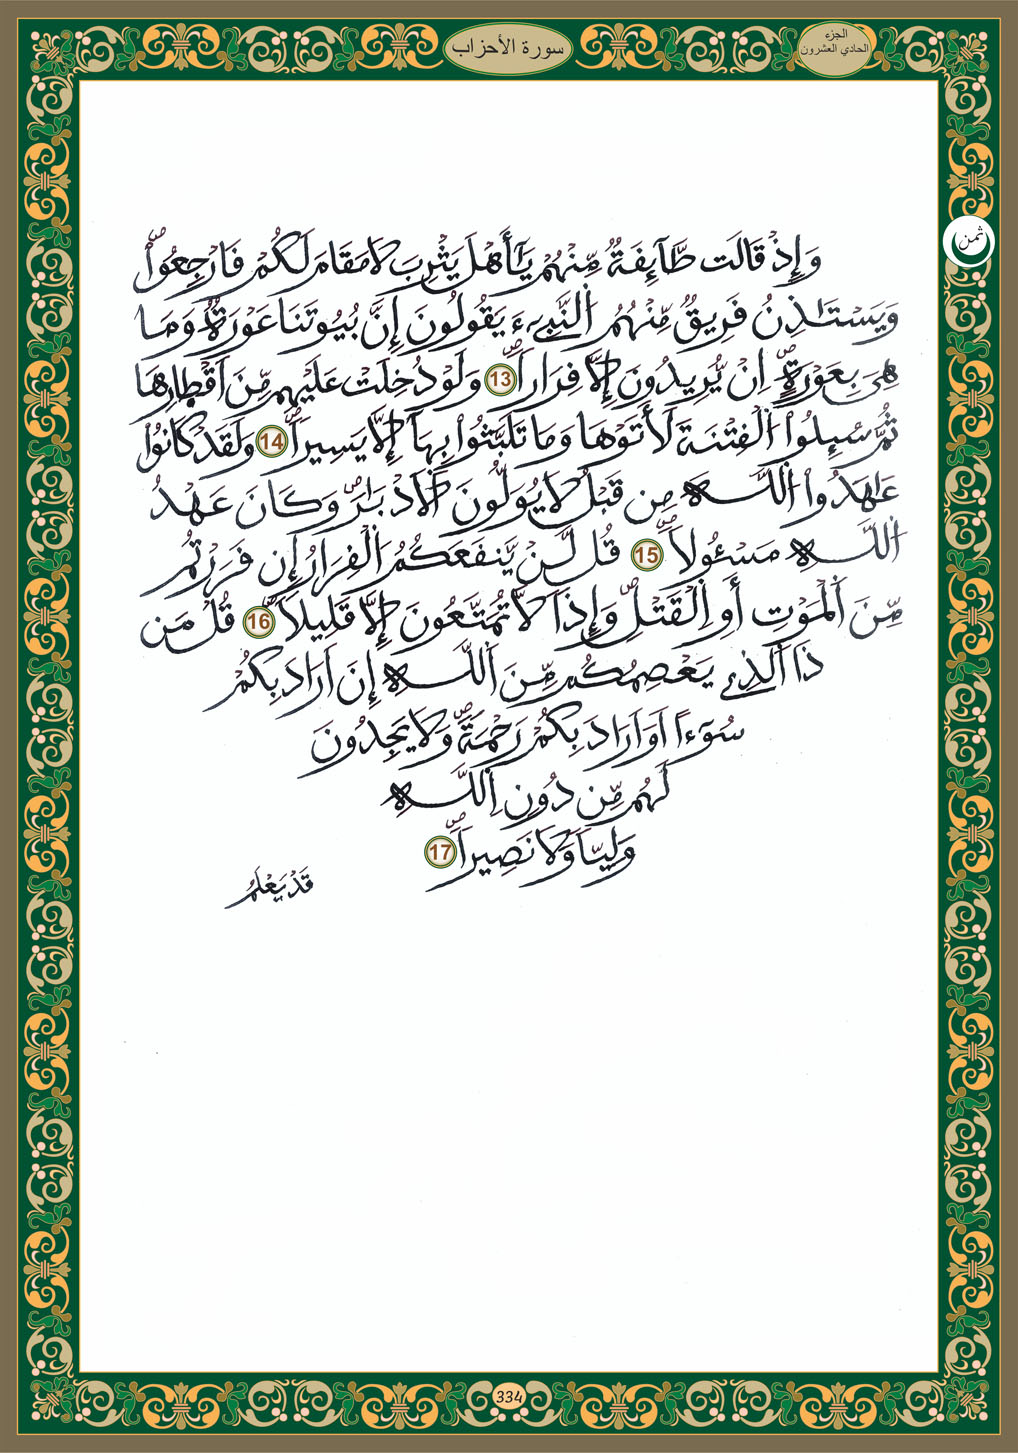 سورة الأحزاب
الجزء
الحادي العشرون
ثمن
وَإِذْ قَالَت طَّآئِفَةٌ مِّنْهُمْ يَٰٓأَهْلَ يَثْرِبَ لَا مَقَامَ لَكُمْ فَارْجِعُواْ
وَيَسْتَٰذِنُ فَرِيقٌ مِّنْهُمُ النَّبِىٓءَ يَقُولُونَ إِنَّ بُيُوتَنَا عَوْرَةٌ وَمَا
هِىَ بِعَوْرَةٍ اِنْ يُّرِيدُونَ إِلَّا فِرَاراً 13 وَلَوْ دُخِلَتْ عَلَيْهِم مِّنَ اَقْطِارِهَا
ثُمَّ سُئِلُواْ الْفِتْنَةَ لَأَتَوْهَا وَمَا تَلَبَّثُواْ بِهَآ إِلَّا يَسِيراً 14 وَلَقَدْ كَانُواْ
عَٰهَدُواْ اللَّهَ مِن قَبْلُ لَا يُوَلُّونَ اَلَادْبَٰرَ وَكَانَ عَهْدُ
اللَّهِ مَسْئُولاً 15 قُل لَّنْ يَّنفَعَكُمُ الْفِرَارُ إِن فَرَرْتُم
مِّنَ اَلْمَوْتِ أَوِ اِلْقَتْلِ وَإِذاً لَّا تُمَتَّعُونَ إِلَّا قَلِيلاً 16 قُلْ مَن
ذَا اَلَّذِى يَعْصِمُكُم مِّنَ اَللَّهِ إِنَ اَرَادَ بِكُمْ
سُوٓءاً اَوَ اَرَادَ بِكُمْ رَحْمَةً وَلَا يَجِدُونَ
لَهُم مِّن دُونِ اِللَّهِ
وَلِيّاً وَلَا نَصِيراً 17
قَدْ يَعْلَمُ
334